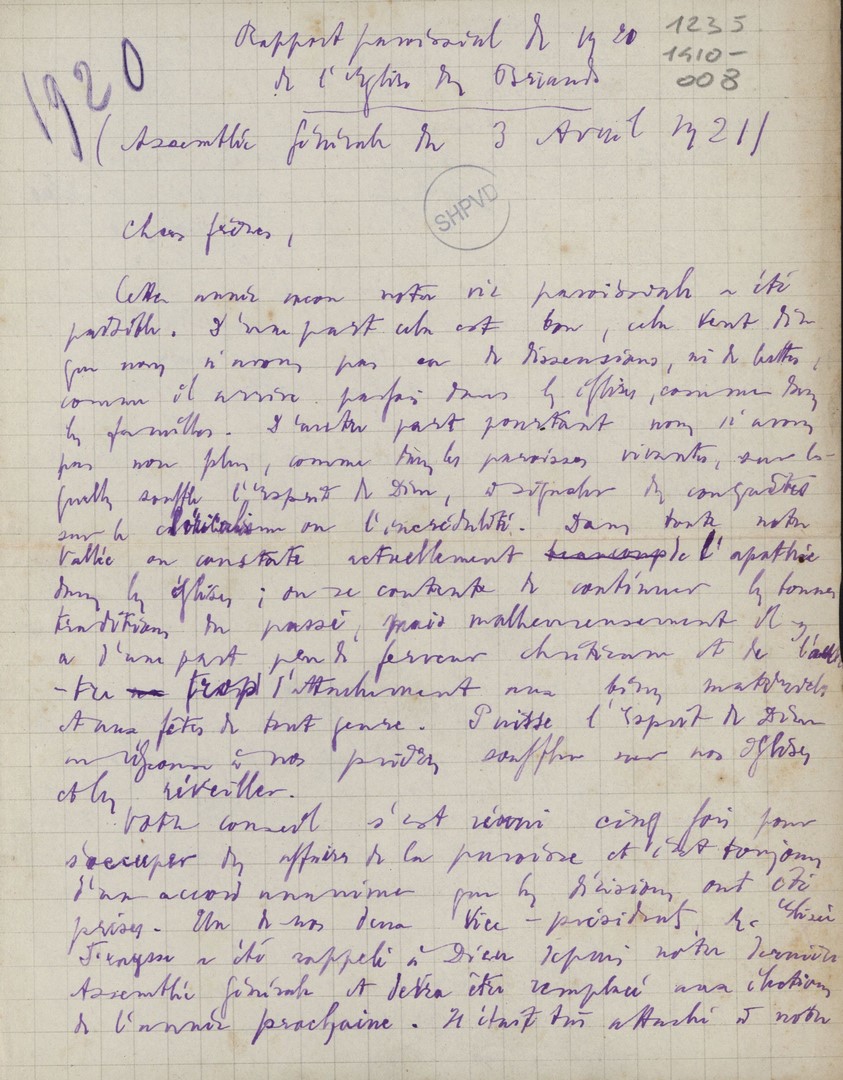 1920
Rapport paroissial de 1920
1235
1910-
008
de l'Eglise des Briands
(Assemblée Générale du 3 Avril 1921)
SHPVD
Chers frères,
Cette année encore notre vie paroissiale a été
paisible. D'une part cela est bon, cela veut dire
que nous n'avons pas eu de dissensions, ni de luttes,
comme il arrive parfois dans les églises, comme dans
les familles. D'autre part pourtant nous n'avons
pas non plus, comme dans les paroisses vivantes, sur les-
quelles souffle l'Esprit de Dieu, à signaler des conquêtes
sur le ou l'incrédulité. Dans toute notre
Vallée on constate actuellement beaucoup de l'apathie
dans les églises ; on se contente de continuer les bonnes
traditions du passé, mais malheureusement il y
a d'une part peu de ferveur chrétienne et de l'au-
-tre trop l'attachement aux biens matériels
et aux fêtes de tout genre. Puisse l'Esprit de Dieu
en réponse à nos prières souffler sur nos Eglises
et les réveiller.
Votre conseil s'est réuni cinq fois pour
s'occuper des affaires de la paroisse et c'est toujours
d'un accord unanime que les décisions ont été
prises. Un de nos deux Vice-présidents, Mr Elisée
a été rappelé à Dieu depuis notre dernière
Assemblée Générale et devra être remplacé aux élections
de l'année prochaine. Il était très attaché à notre